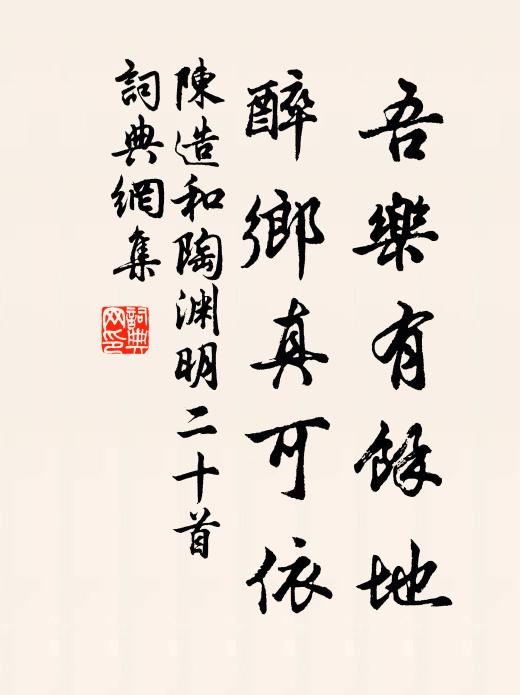 吾樂有餘地
醉鄉真可依
陳造和陶淵明二十首
詞典網集
詞典网印